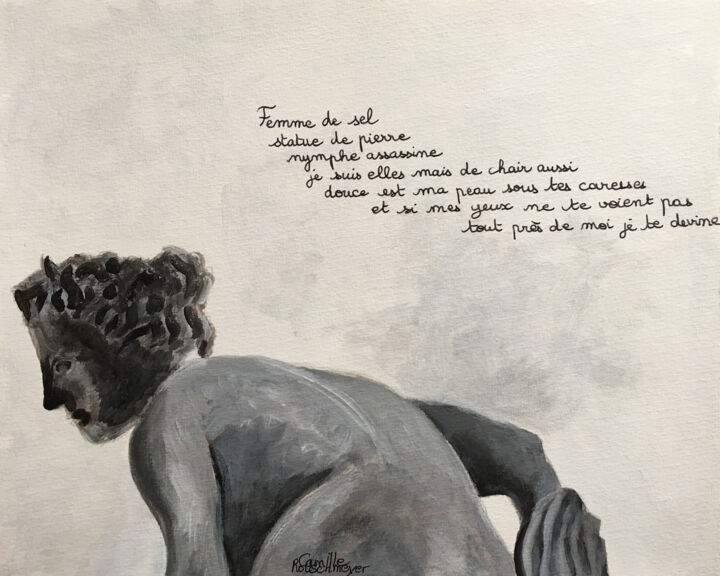 Femme de sel
statue de pierre
nymphe assassine
je suis elles mais de chair aussi
douce est ma peau sous tes caresses
et si mes yeux ne te voient pas
tout près de moi je te devine
Camille
Rotschmeyer